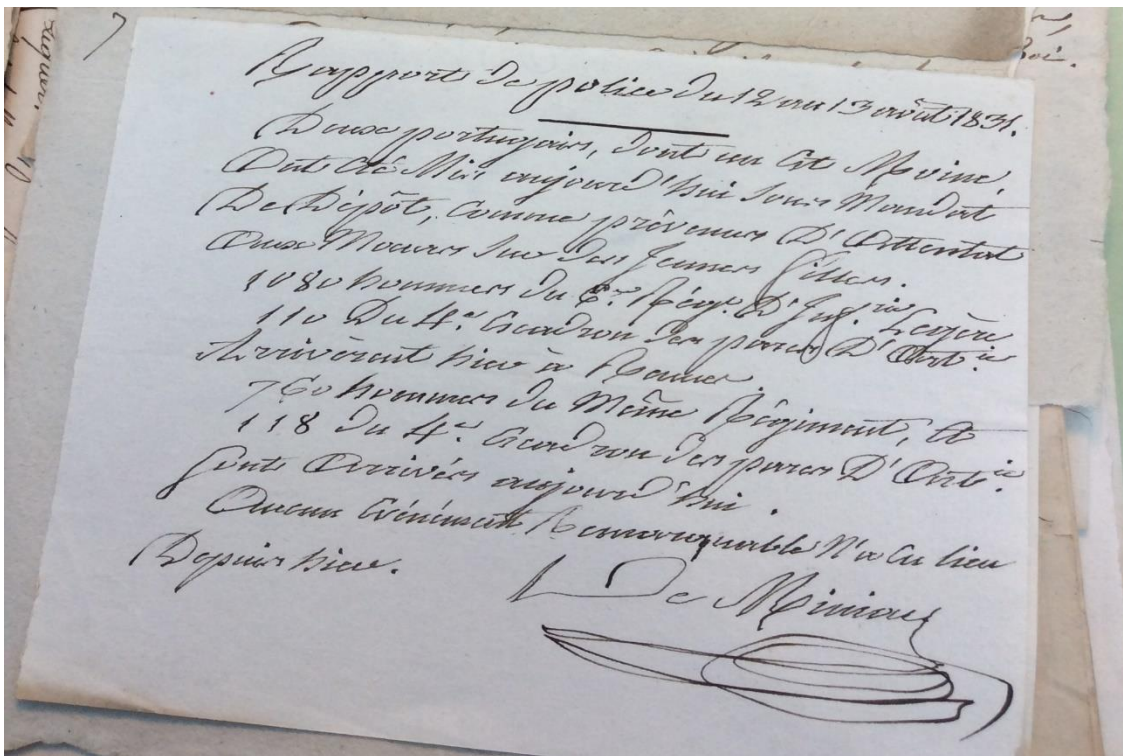 Rapport de police du 12 au 13 août 1831.
Deux portugais, dont un Est Moine,
Ont été Mis aujourd'hui Sous Mandat
De Dépôt, Comme prévenus D'Attentat
Aux Moeurs Sur des Jeunes filles.
1080 hommes du 6.e Régt. D'Inf.ie Légère
110 Du 4.e Escadron des parcs D'Art.ie
Arrivèrent hier à Rennes
760 hommes du Même Régiment, et
118 du 4.e Escadron des parcs D'Art.ie
Sont Arrivés aujourd'hui.
Aucun Evénement Remarquable N'a Eu lieu
Depuis hier.
De Miniou